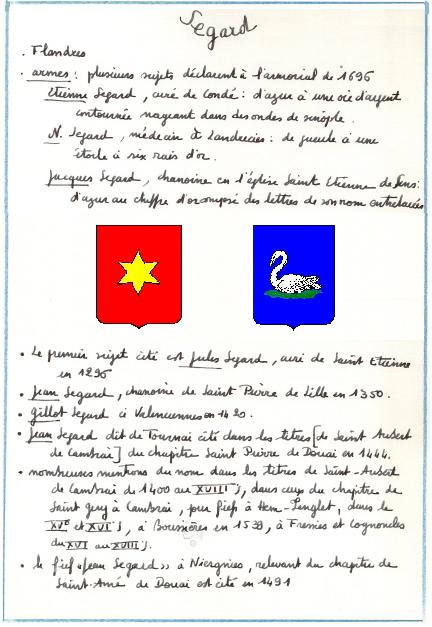 Segard
. Flandres
. armes : plusieurs sujets déclarent à l'armorial de 1696
Etienne Segard, curé de Condé : d'azur à une oie d'argent
contournée nageant dans des ondes de sinople.
N. Segard, médecin à Landrecies : de gueule à une
étoile à six rais d'or.
Jacques Segard, chanoine en l'église Saint Etienne de Sens :
d'azur au chiffre d'or composé des lettres de son nom entrelacées
• Le premier sujet cité est Jules Segard, curé de Saint Etienne
en 1296
• Jean Segard, chanoine de Saint Pierre de Lille en 1350.
• Gillot Segard à Valenciennes en 1420.
• Jean Segard dit de Tournai cité dans les titres [de Saint Aubert
de Cambrai] du chapitre Saint Pierre de Douai en 1444.
• nombreuses mentions du nom dans les titres de Saint-Aubert
de Cambrai de 1400 au XVIII s, dans ceux du chapitre de
Saint Géry à Cambrai, pour fiefs à Hem-Lenglet, dans le
XVe et XVI s, à Boussières en 1539, à Fressies et Cagnoncles
du XVI au XVIII s.
• le fief «Jean Segard» à Niergnies, relevant du chapitre de
Saint-Amé de Douai est cité en 1491